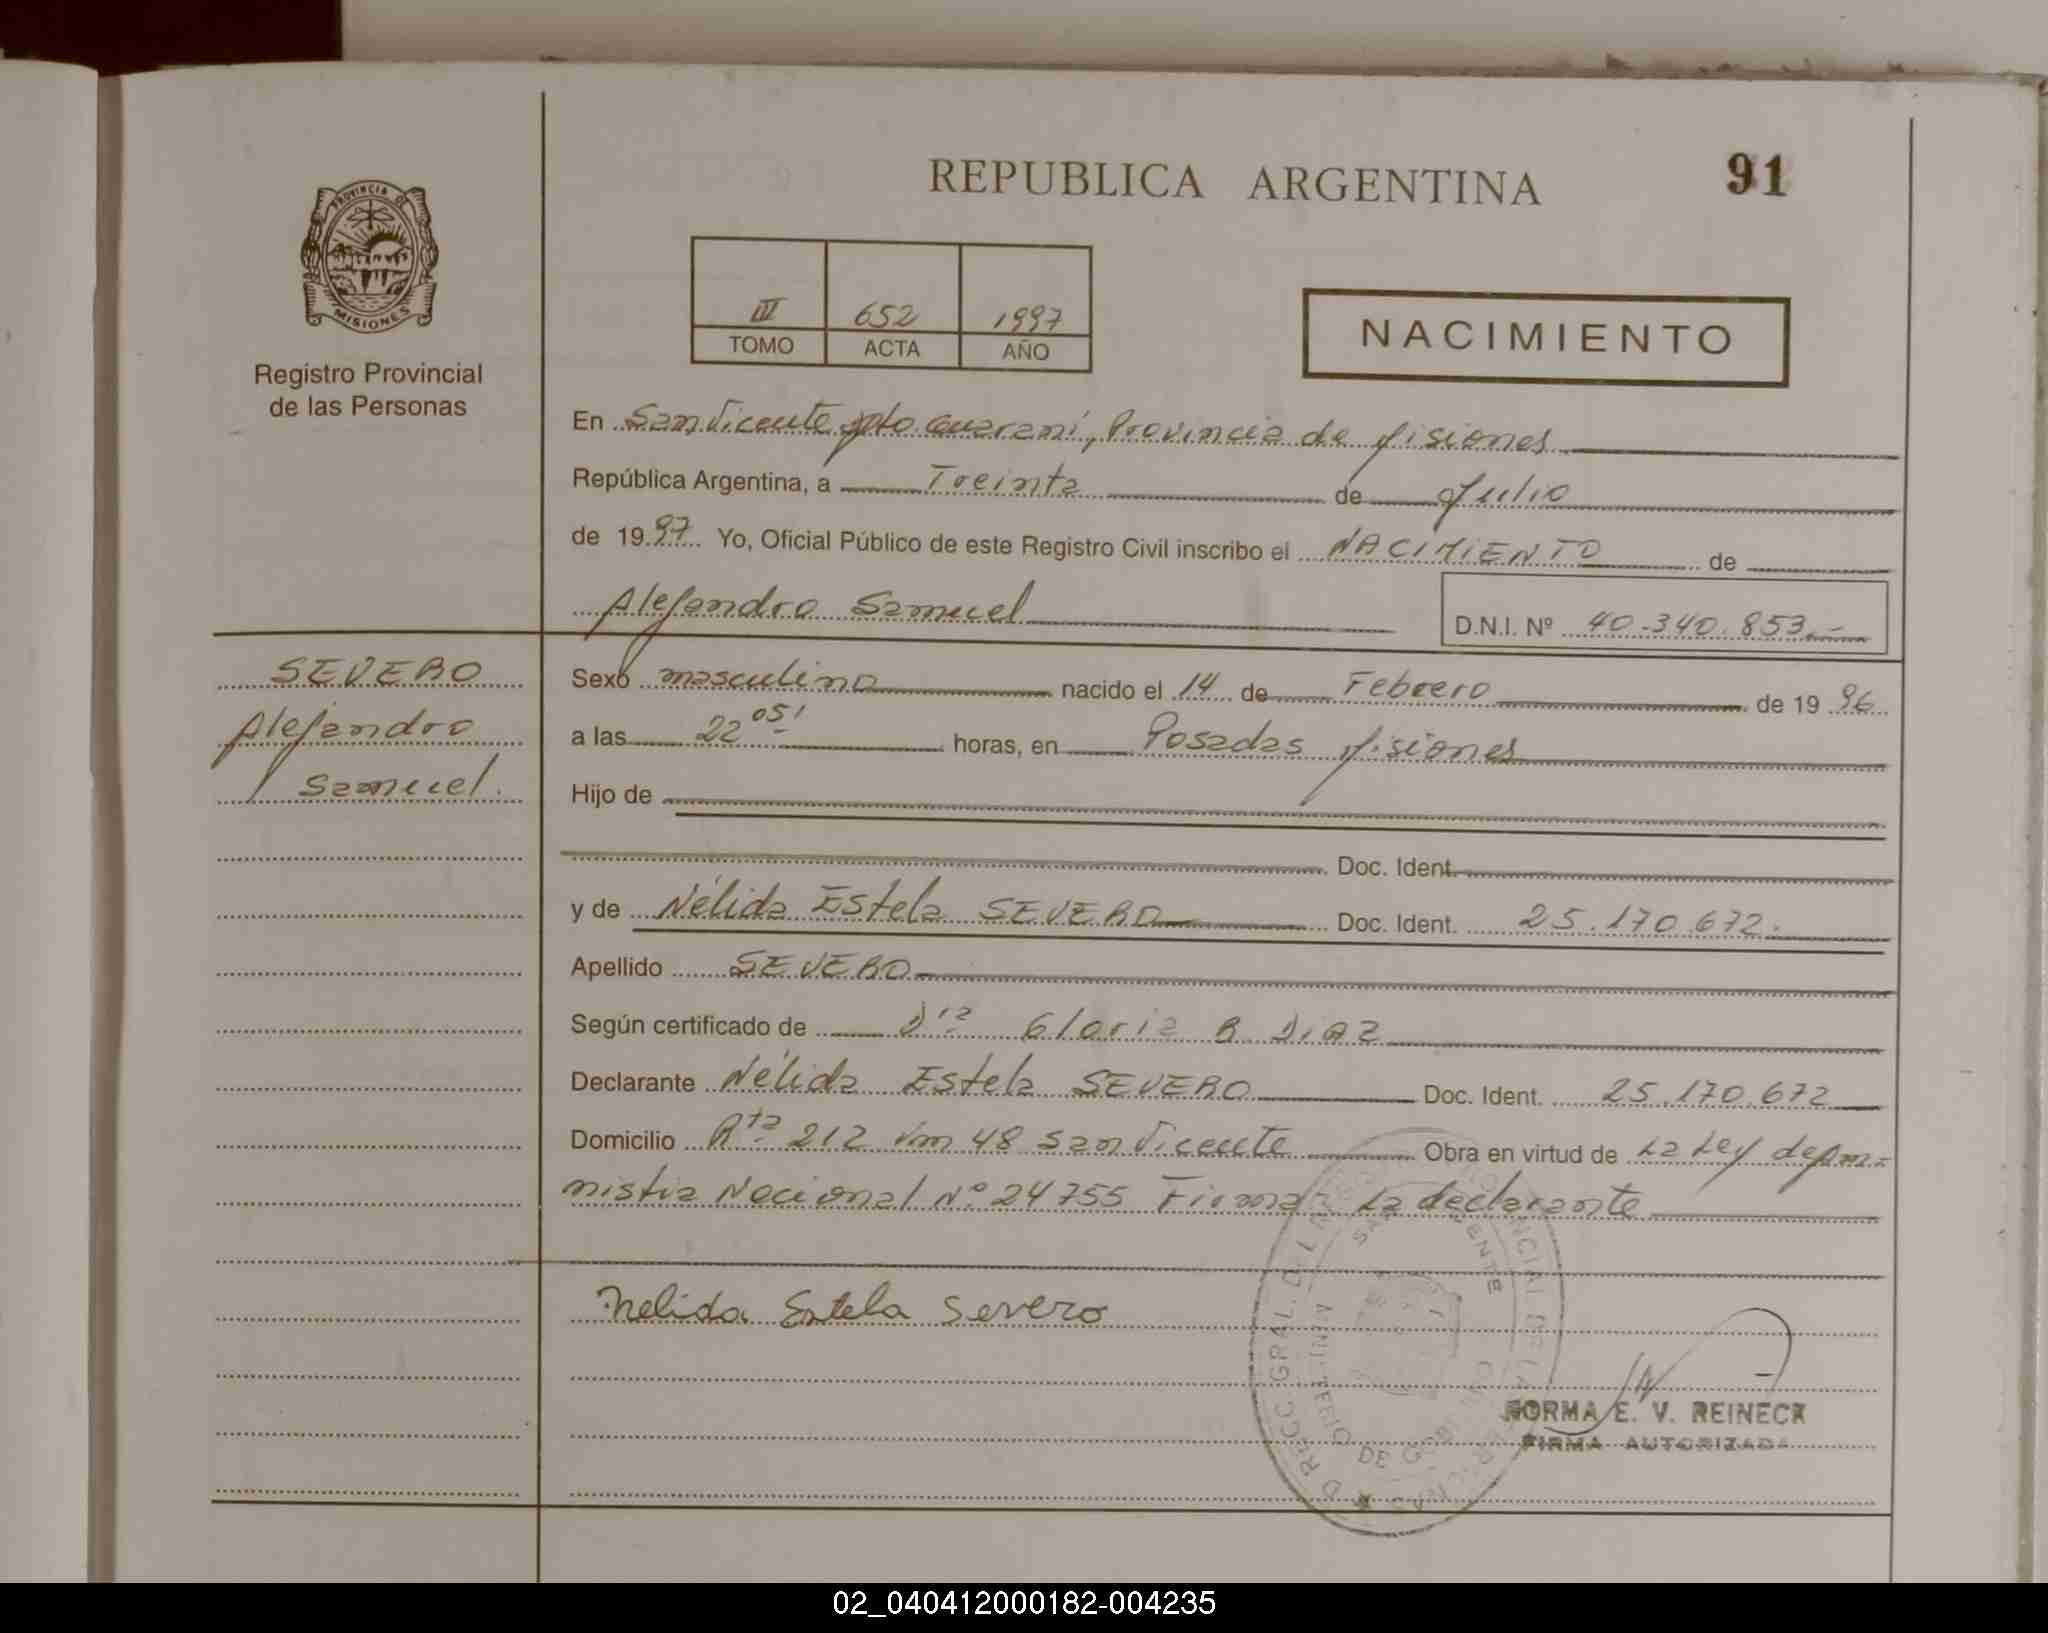 REPUBLICA ARGENTINA
91
PROVINCIA DE
MISIONES
Registro Provincial
de las Personas
III 652 1997
TOMO ACTA AÑO
NACIMIENTO
En San Vicente Dpto. Guaraní, Provincia de Misiones
República Argentina, a Treinta de Julio
de 1997 Yo, Oficial Público de este Registro Civil inscribo el NACIMIENTO de
Alejandro Samuel
D.N.I. Nº 40.340.853.-
SEVERO
Alejandro
Samuel.
Sexo masculino nacido el 14 de Febrero de 1996
a las 22 05' horas, en Posadas Misiones
Hijo de
Doc. Ident.
y de Nélida Estela SEVERO Doc. Ident. 25.170.672.
Apellido SEVERO
Según certificado de Dra Gloria B. DIAZ
Declarante Nélida Estela SEVERO Doc. Ident. 25.170.672
Domicilio Rta 212 Km 48 San Vicente Obra en virtud de La Ley de Am-
nistia Nacional Nº 24755 Firma: La declarante
Nelida Estela Severo
NORMA E. V. REINECK
FIRMA AUTORIZADA
02_040412000182-004235